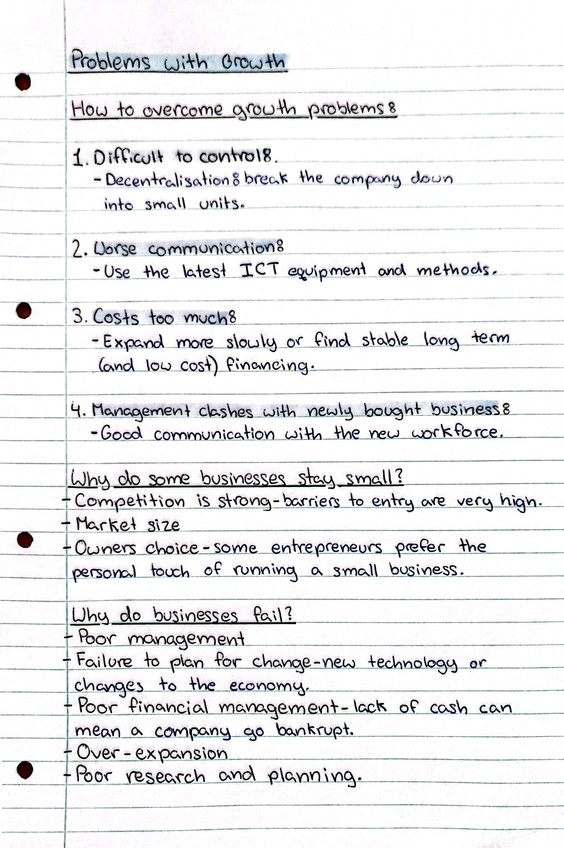 Problems with Growth
How to overcome growth problems:
1. Difficult to control:.
- Decentralisation: break the company down
into small units.
2. Worse communication:
- Use the latest ICT equipment and methods.
3. Costs too much:
- Expand more slowly or find stable long term
(and low cost) financing.
4. Management clashes with newly bought business:
- Good communication with the new workforce.
Why do some businesses stay small?
- Competition is strong - barriers to entry are very high.
- Market size
- Owners choice - some entrepreneurs prefer the
personal touch of running a small business.
Why do businesses fail?
- Poor management
- Failure to plan for change - new technology or
changes to the economy.
- Poor financial management - lack of cash can
mean a company go bankrupt.
- Over - expansion
- Poor research and planning.